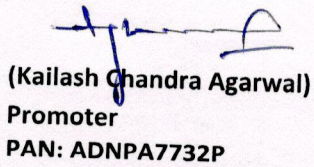 (Kailash Chandra Agarwal)
Promoter
PAN: ADNPA7732P